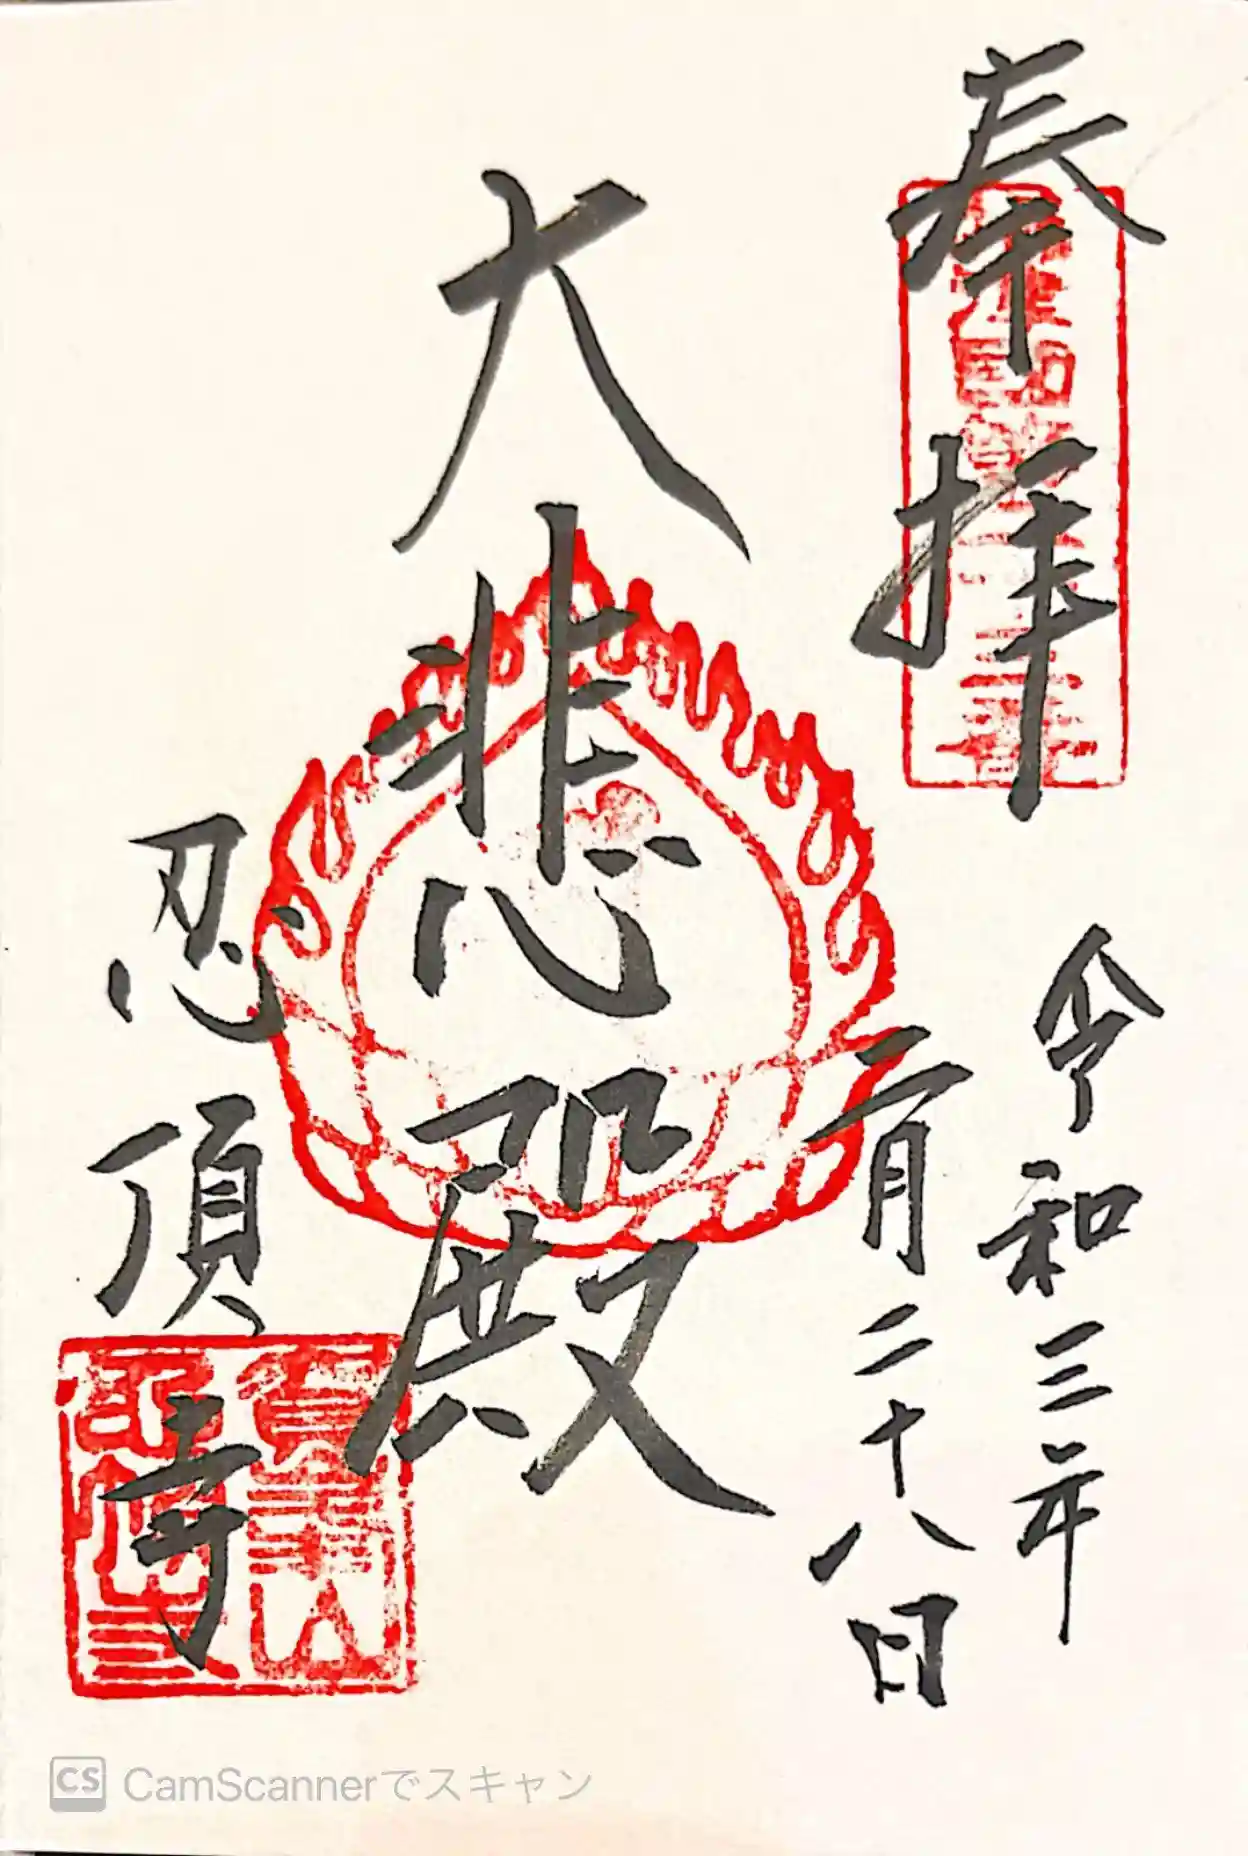 奉拝
令和三年
二月二十八日
大悲殿
忍頂寺
CS CamScannerでスキャン